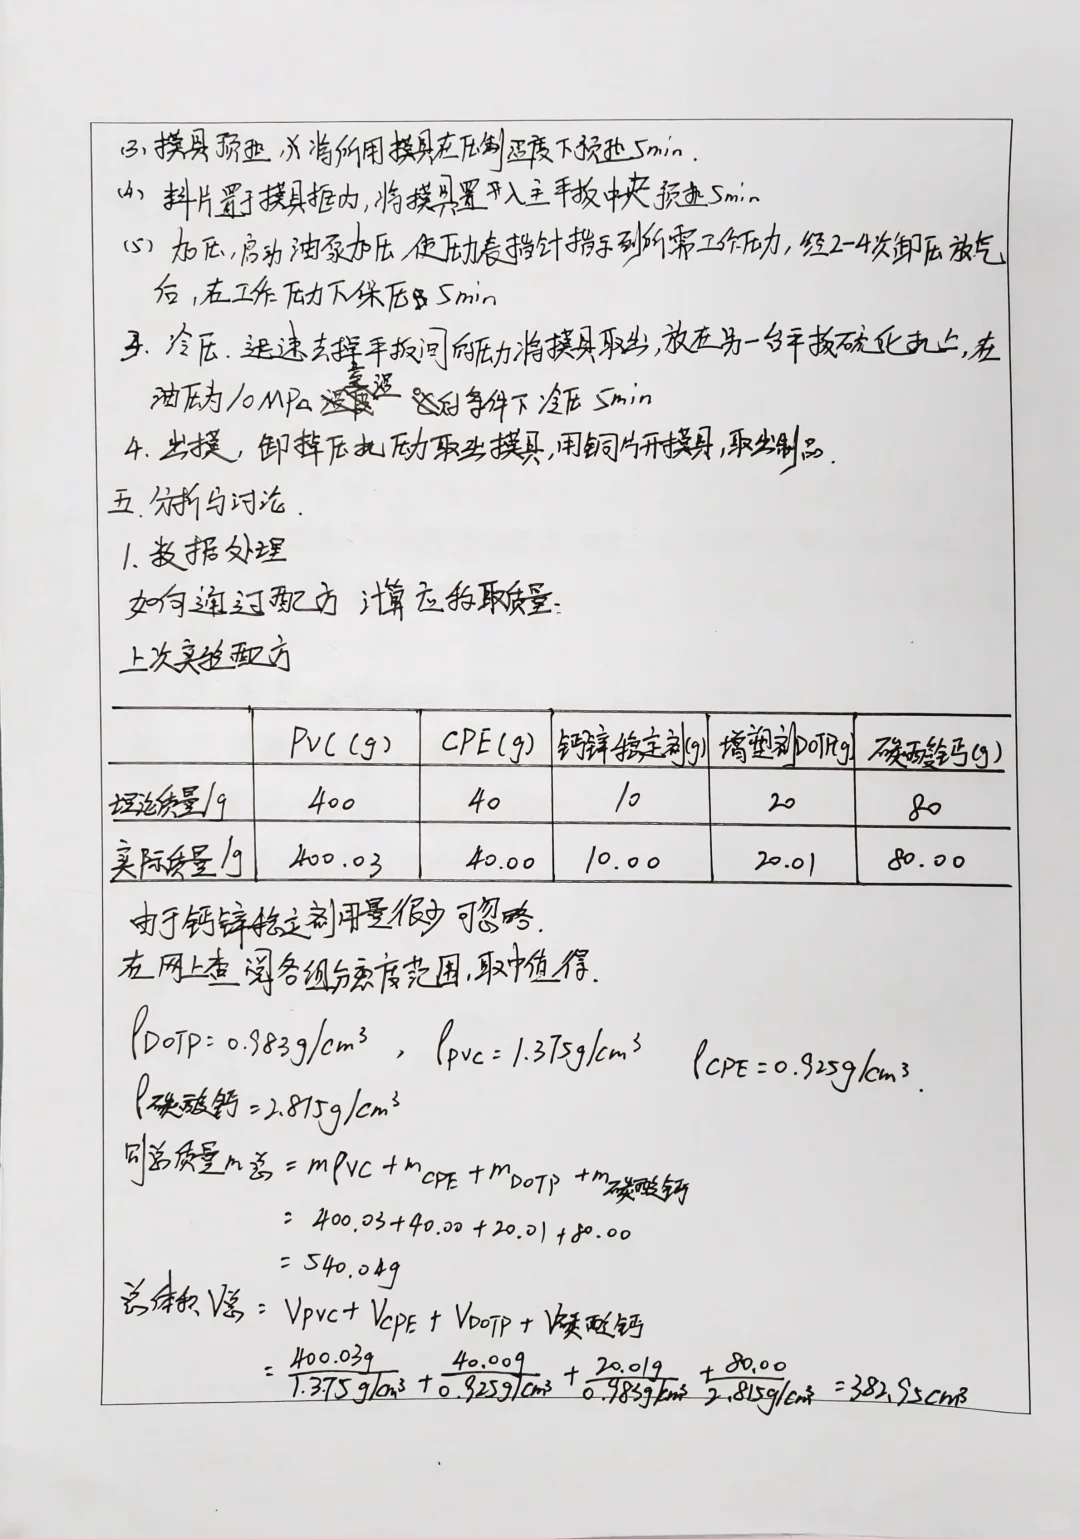 (3) 模具预热，将所用模具在压制温度下预热5min.
(4) 料片置于模具框内，将模具置开入主平板中央预热5min
(5) 加压，启动油泵加压，使压力表指针指示到所需工作压力，经2-4次卸压放气
后，在工作压力下保压5min
3. 冷压. 迅速去掉平板间的压力将模具取出，放在另一台平板硫化机上，在
油压为10MPa 室温的条件下冷压5min
4. 出模，卸掉压机压力取出模具，用铜片开模具，取出制品.
五. 分析与讨论.
1. 数据处理
如何通过配方计算应称取质量:
上次实验配方
PVC(g) CPE(g) 钙锌稳定剂(g) 增塑剂DOTP(g) 碳酸钙(g)
理论质量/g 400 40 10 20 80
实际质量/g 400.03 40.00 10.00 20.01 80.00
由于钙锌稳定剂用量很少可忽略.
在网上查阅各组分密度范围,取中值得.
ρDOTP=0.983g/cm³, ρPVC=1.375g/cm³ ρCPE=0.925g/cm³.
ρ碳酸钙=2.815g/cm³
则总质量m总=mPVC+mCPE+mDOTP+m碳酸钙
=400.03+40.00+20.01+80.00
=540.04g
总体积V总=VPVC+VCPE+VDOTP+V碳酸钙
=400.03g/1.375g/cm³+40.00g/0.925g/cm³+20.01g/0.983g/cm³+80.00/2.815g/cm³=382.95cm³